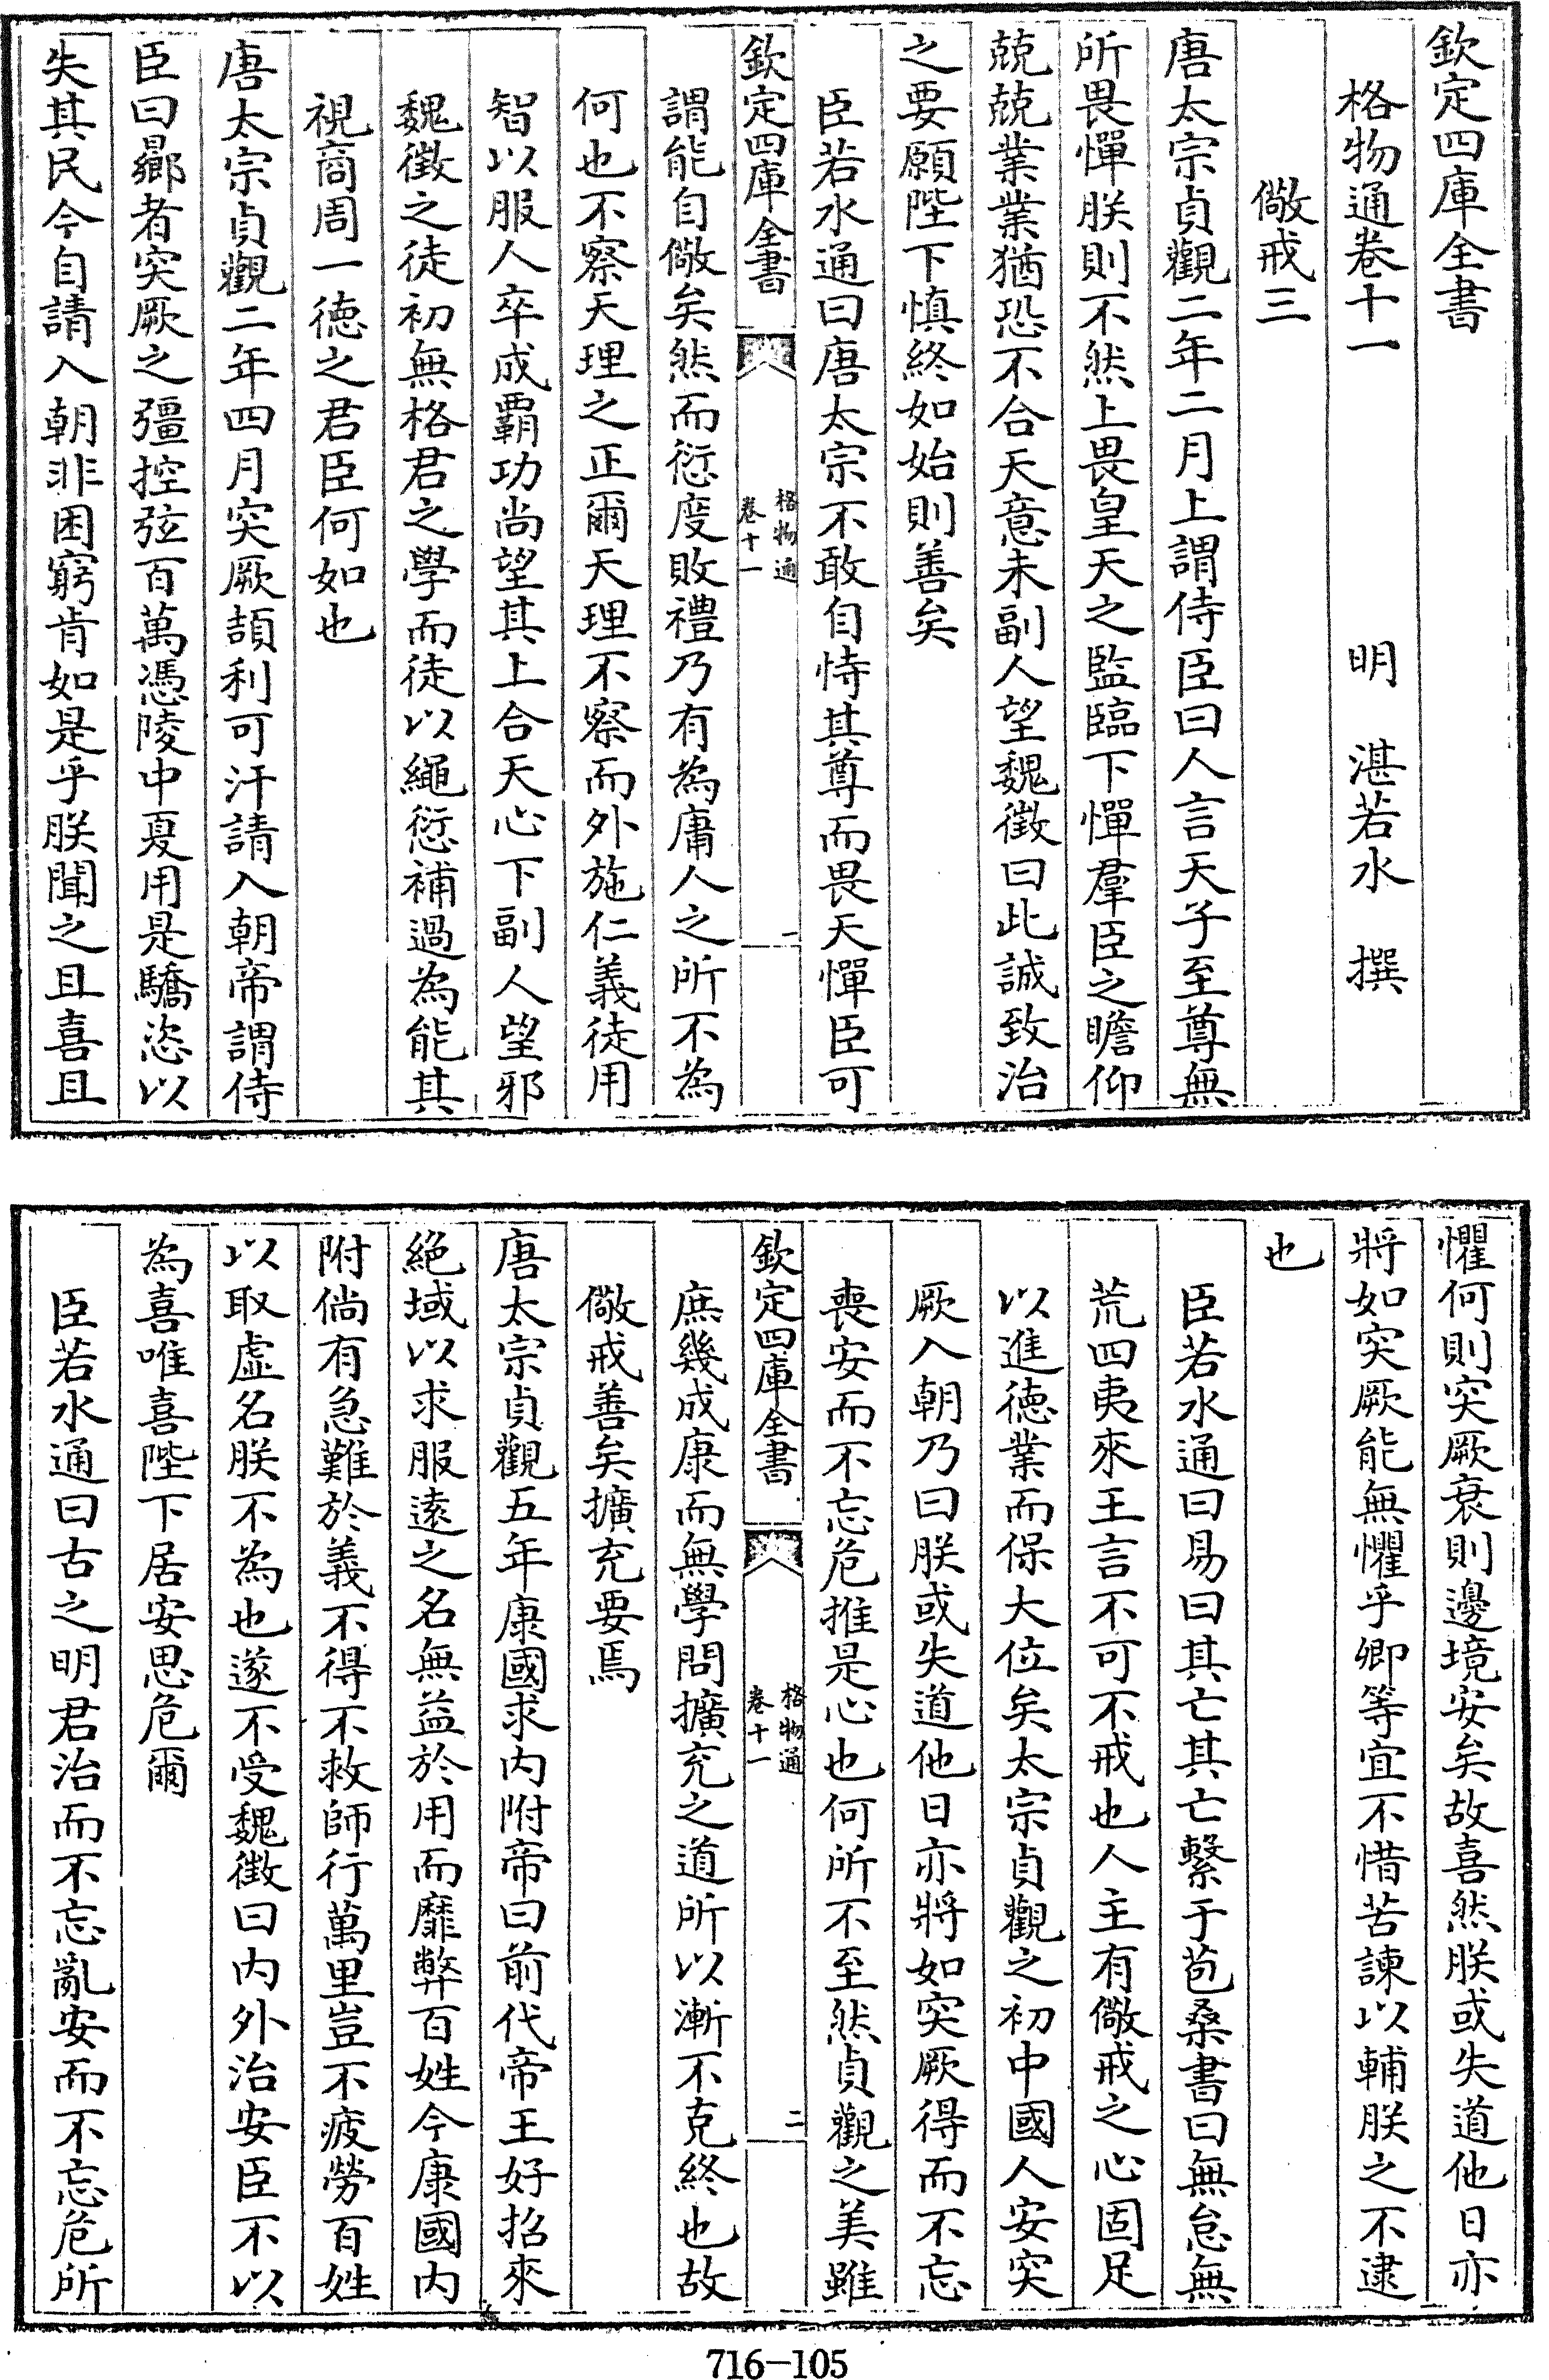 欽定四庫全書
格物通卷十一
明 湛若水 撰
儆戒三
唐太宗貞觀二年二月上謂侍臣曰人言天子至尊無
所畏憚朕則不然上畏皇天之監臨下憚羣臣之瞻仰
兢兢業業猶恐不合天意未副人望魏徵曰此誠致治
之要願陛下慎終如始則善矣
臣若水通曰唐太宗不敢自恃其尊而畏天憚臣可
欽定四庫全書
格物通
卷十一
一
謂能自儆矣然而愆度敗禮乃有為庸人之所不為
何也不察天理之正爾天理不察而外施仁義徒用
智以服人卒成霸功尚望其上合天心下副人望邪
魏徵之徒初無格君之學而徒以繩愆補過為能其
視商周一徳之君臣何如也
唐太宗貞觀二年四月突厥頡利可汗請入朝帝謂侍
臣曰曏者突厥之彊控弦百萬憑陵中夏用是驕恣以
失其民今自請入朝非困窮肯如是乎朕聞之且喜且
懼何則突厥衰則邊境安矣故喜然朕或失道他日亦
將如突厥能無懼乎卿等宜不惜苦諫以輔朕之不逮
也
臣若水通曰易曰其亡其亡繫于苞桑書曰無怠無
荒四夷來王言不可不戒也人主有儆戒之心固足
以進徳業而保大位矣太宗貞觀之初中國人安突
厥入朝乃曰朕或失道他日亦將如突厥得而不忘
喪安而不忘危推是心也何所不至然貞觀之美雖
欽定四庫全書
格物通
卷十一
二
庶幾成康而無學問擴充之道所以漸不克終也故
儆戒善矣擴充要焉
唐太宗貞觀五年康國求内附帝曰前代帝王好招來
絶域以求服逺之名無益於用而靡弊百姓今康國内
附倘有急難於義不得不救師行萬里豈不疲勞百姓
以取虚名朕不為也遂不受魏徵曰内外治安臣不以
為喜唯喜陛下居安思危爾
臣若水通曰古之明君治而不忘亂安而不忘危所
716-105